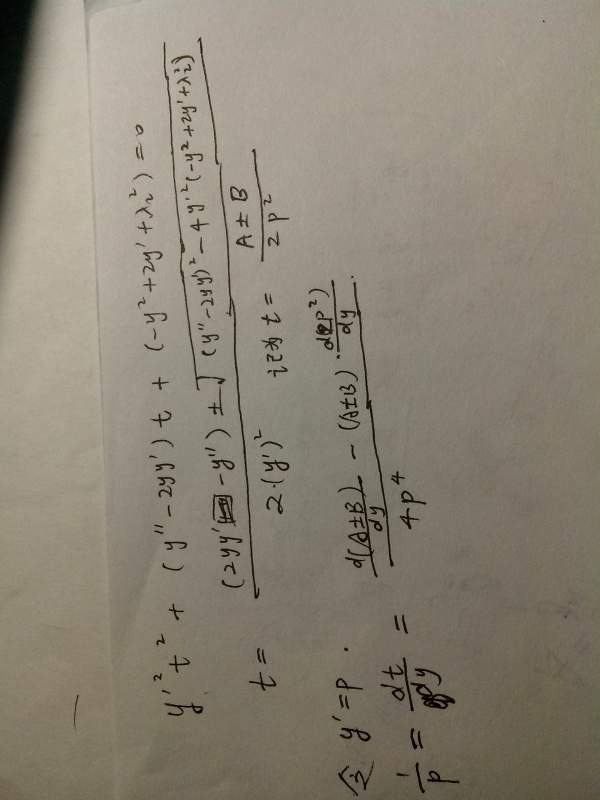 y'² t² + (y'' - 2yy') t + (-y² + 2y' + λ²) = 0
t = ((2yy' - y'') ± √((y'' - 2yy')² - 4y'²(-y² + 2y' + λ²))) / (2·(y')²) 记为 t = (A±B) / (2p²)
令 y' = p.
1/p = dt/dy = (d(A±B)/dy - (A±B)·d(2p²)/dy) / (4p⁴).